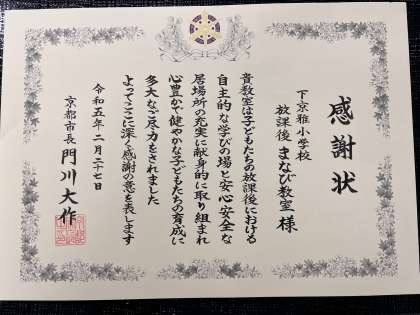 感謝状
下京雅小学校
放課後まなび教室 様
貴教室は子どもたちの放課後における
自主的な学びの場と安心安全な
居場所の充実に献身的に取り組まれ
心豊かで健やかな子どもたちの育成に
多大なご尽力をされました
よってここに深く感謝の意を表します
令和五年二月二十七日
京都市長 門川大作